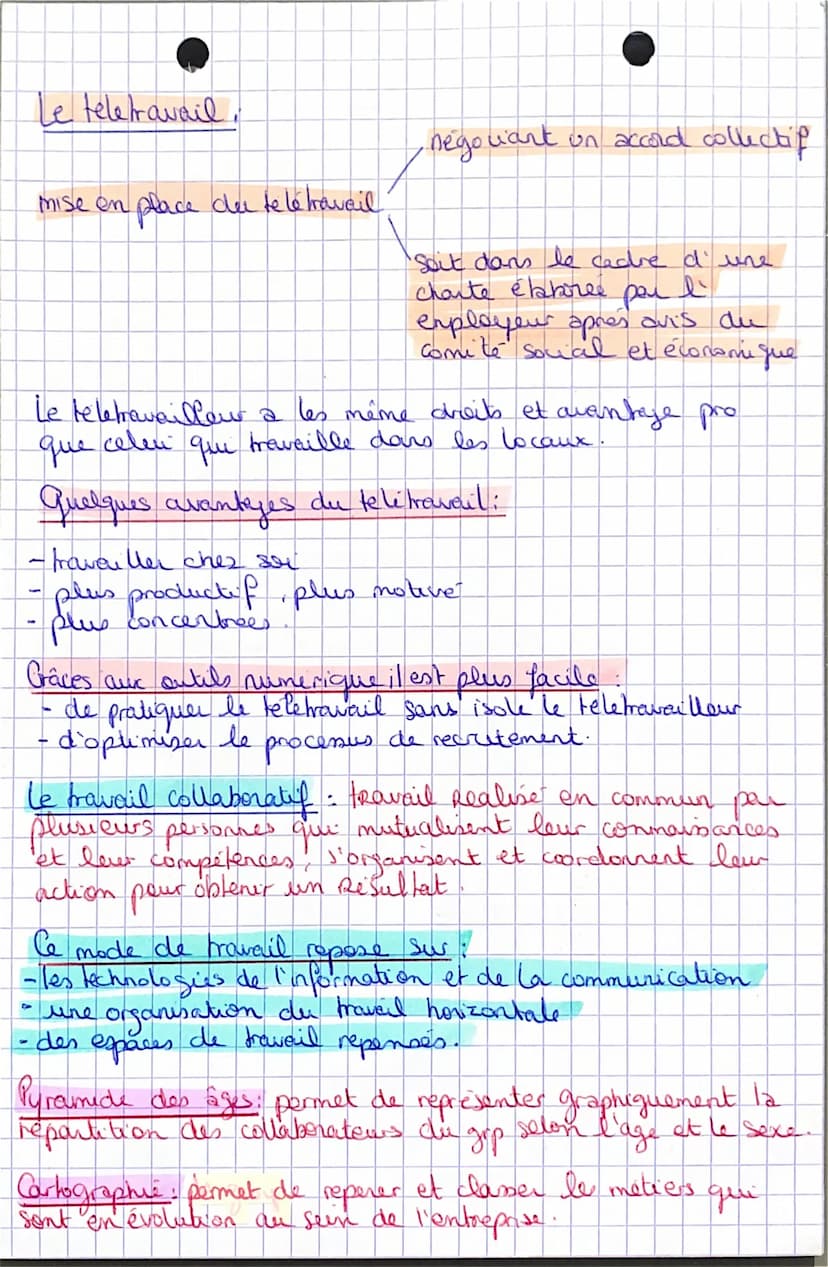 Le teletravail :
négociant un accord collectif
mise en place du teletravail
soit dans le cadre d'une
charte élaboreé par l'
employeur après avis du
comité social et économique
Le teletravailleur a les même droits et avantage pro
que celui qui travaille dans les locaux.
Quelques avantages du teletravail :
- travailler chez soi
- plus productif, plus motivé
- plus concentrées.
Grâces aux outils numérique il est plus facile :
- de pratiquer le teletravail sans isolé le teletravailleur
- d'optimiser le processus de recrutement.
Le travail collaboratif : travail realisé en commun par
plusieurs personnes qui mutualisent leur connaissances
et leur compétences, s'organisent et coordonnent leur
action pour obtenir un résultat.
Ce mode de travail repose sur :
- les technologies de l'information et de la communication
- une organisation du travail horizontale
- des espaces de travail repensés.
Pyramide des âges : permet de représenter graphiquement la
répartition des collaborateurs du grp selon l'age et le sexe.
Cartographie : permet de reperer et classer le métiers qui
sont en évolution au sein de l'entreprise.